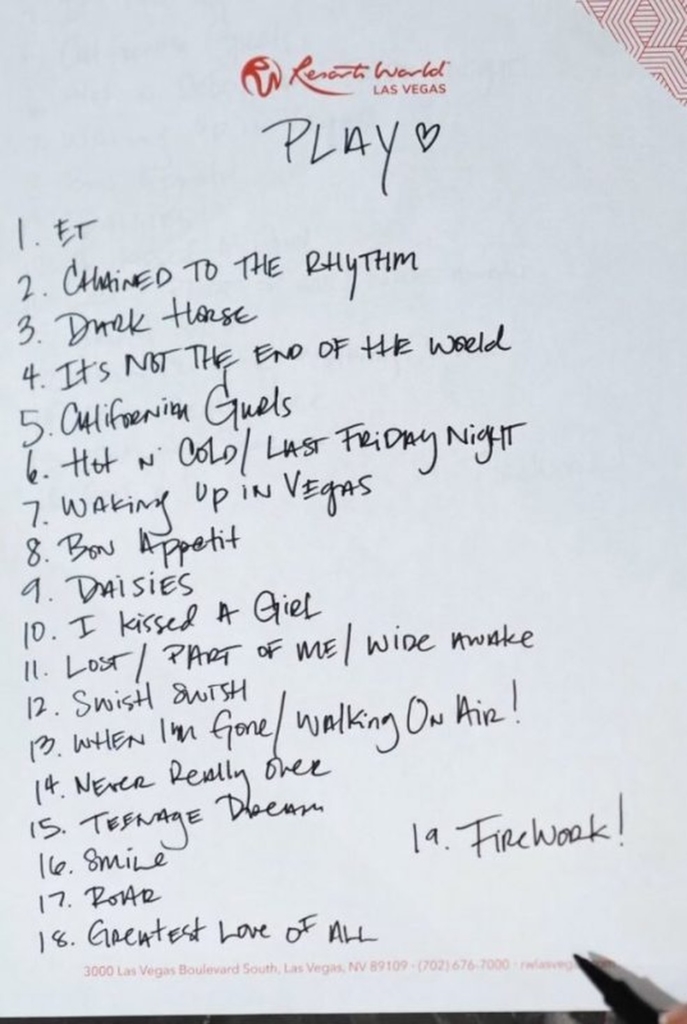 Resorts World
LAS VEGAS
PLAY ♡
1. ET
2. CHAINED TO THE RHYTHM
3. DARK HORSE
4. It's NOT THE END OF tHE WORLD
5. CALIFORNIA GURLS
6. Hot N' COLD / LAST FRIDAY NIGHT
7. WAKING UP IN VEGAS
8. BON Appetit
9. DAISIES
10. I kissed A GIRL
11. LOST / PART OF ME / WIDE AWAKE
12. SWISH SWISH
13. WHEN I'm Gone / WALKING ON AIR!
14. NEVER REALLY OVER
15. TEENAGE DREAM
16. SMILE
17. ROAR
18. GREATEST LOVE OF ALL
19. FIREWORK!
3000 Las Vegas Boulevard South, Las Vegas, NV 89109 · (702) 676-7000 ·